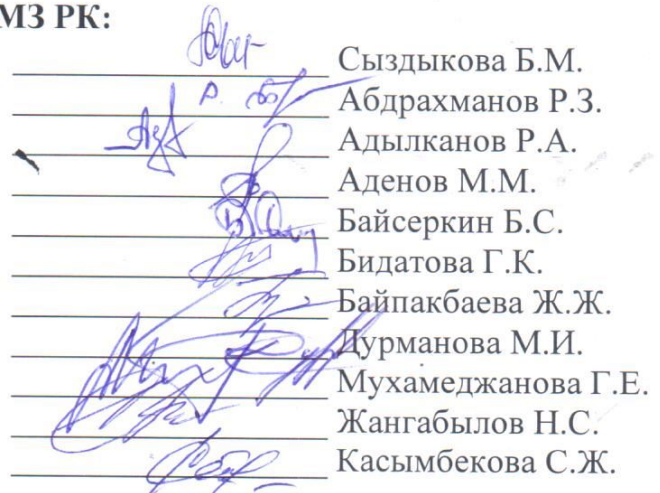 МЗ РК:
Сыздыкова Б.М.
Абдрахманов Р.З.
Адылканов Р.А.
Аденов М.М.
Байсеркин Б.С.
Бидатова Г.К.
Байпакбаева Ж.Ж.
Дурманова М.И.
Мухамеджанова Г.Е.
Жангабылов Н.С.
Касымбекова С.Ж.